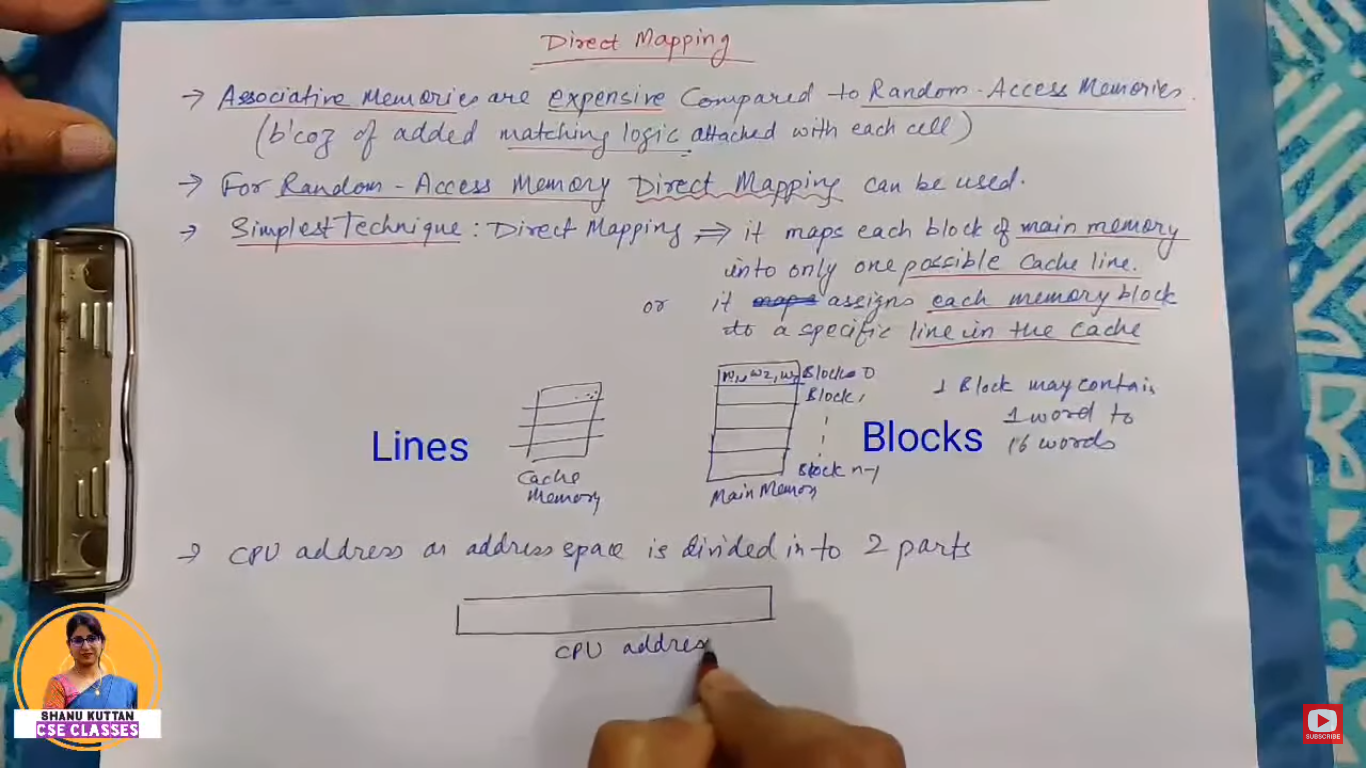 Direct Mapping
→ Associative Memories are expensive Compared to Random-Access Memories.
(b'coz of added matching logic attached with each cell)
→ For Random-Access Memory Direct Mapping can be used.
→ Simplest Technique: Direct Mapping ⇒ it maps each block of main memory
into only one possible Cache line.
or it maps assigns each memory block
to a specific line in the cache
Lines
Cache
Memory
w1, w2, w3 Block 0
Block 1
Block n-1
Main Memory
Blocks
1 Block may contain
1 word to
16 words
→ CPU address or address space is divided into 2 parts
CPU address
SHANU KUTTAN
CSE CLASSES
SUBSCRIBE